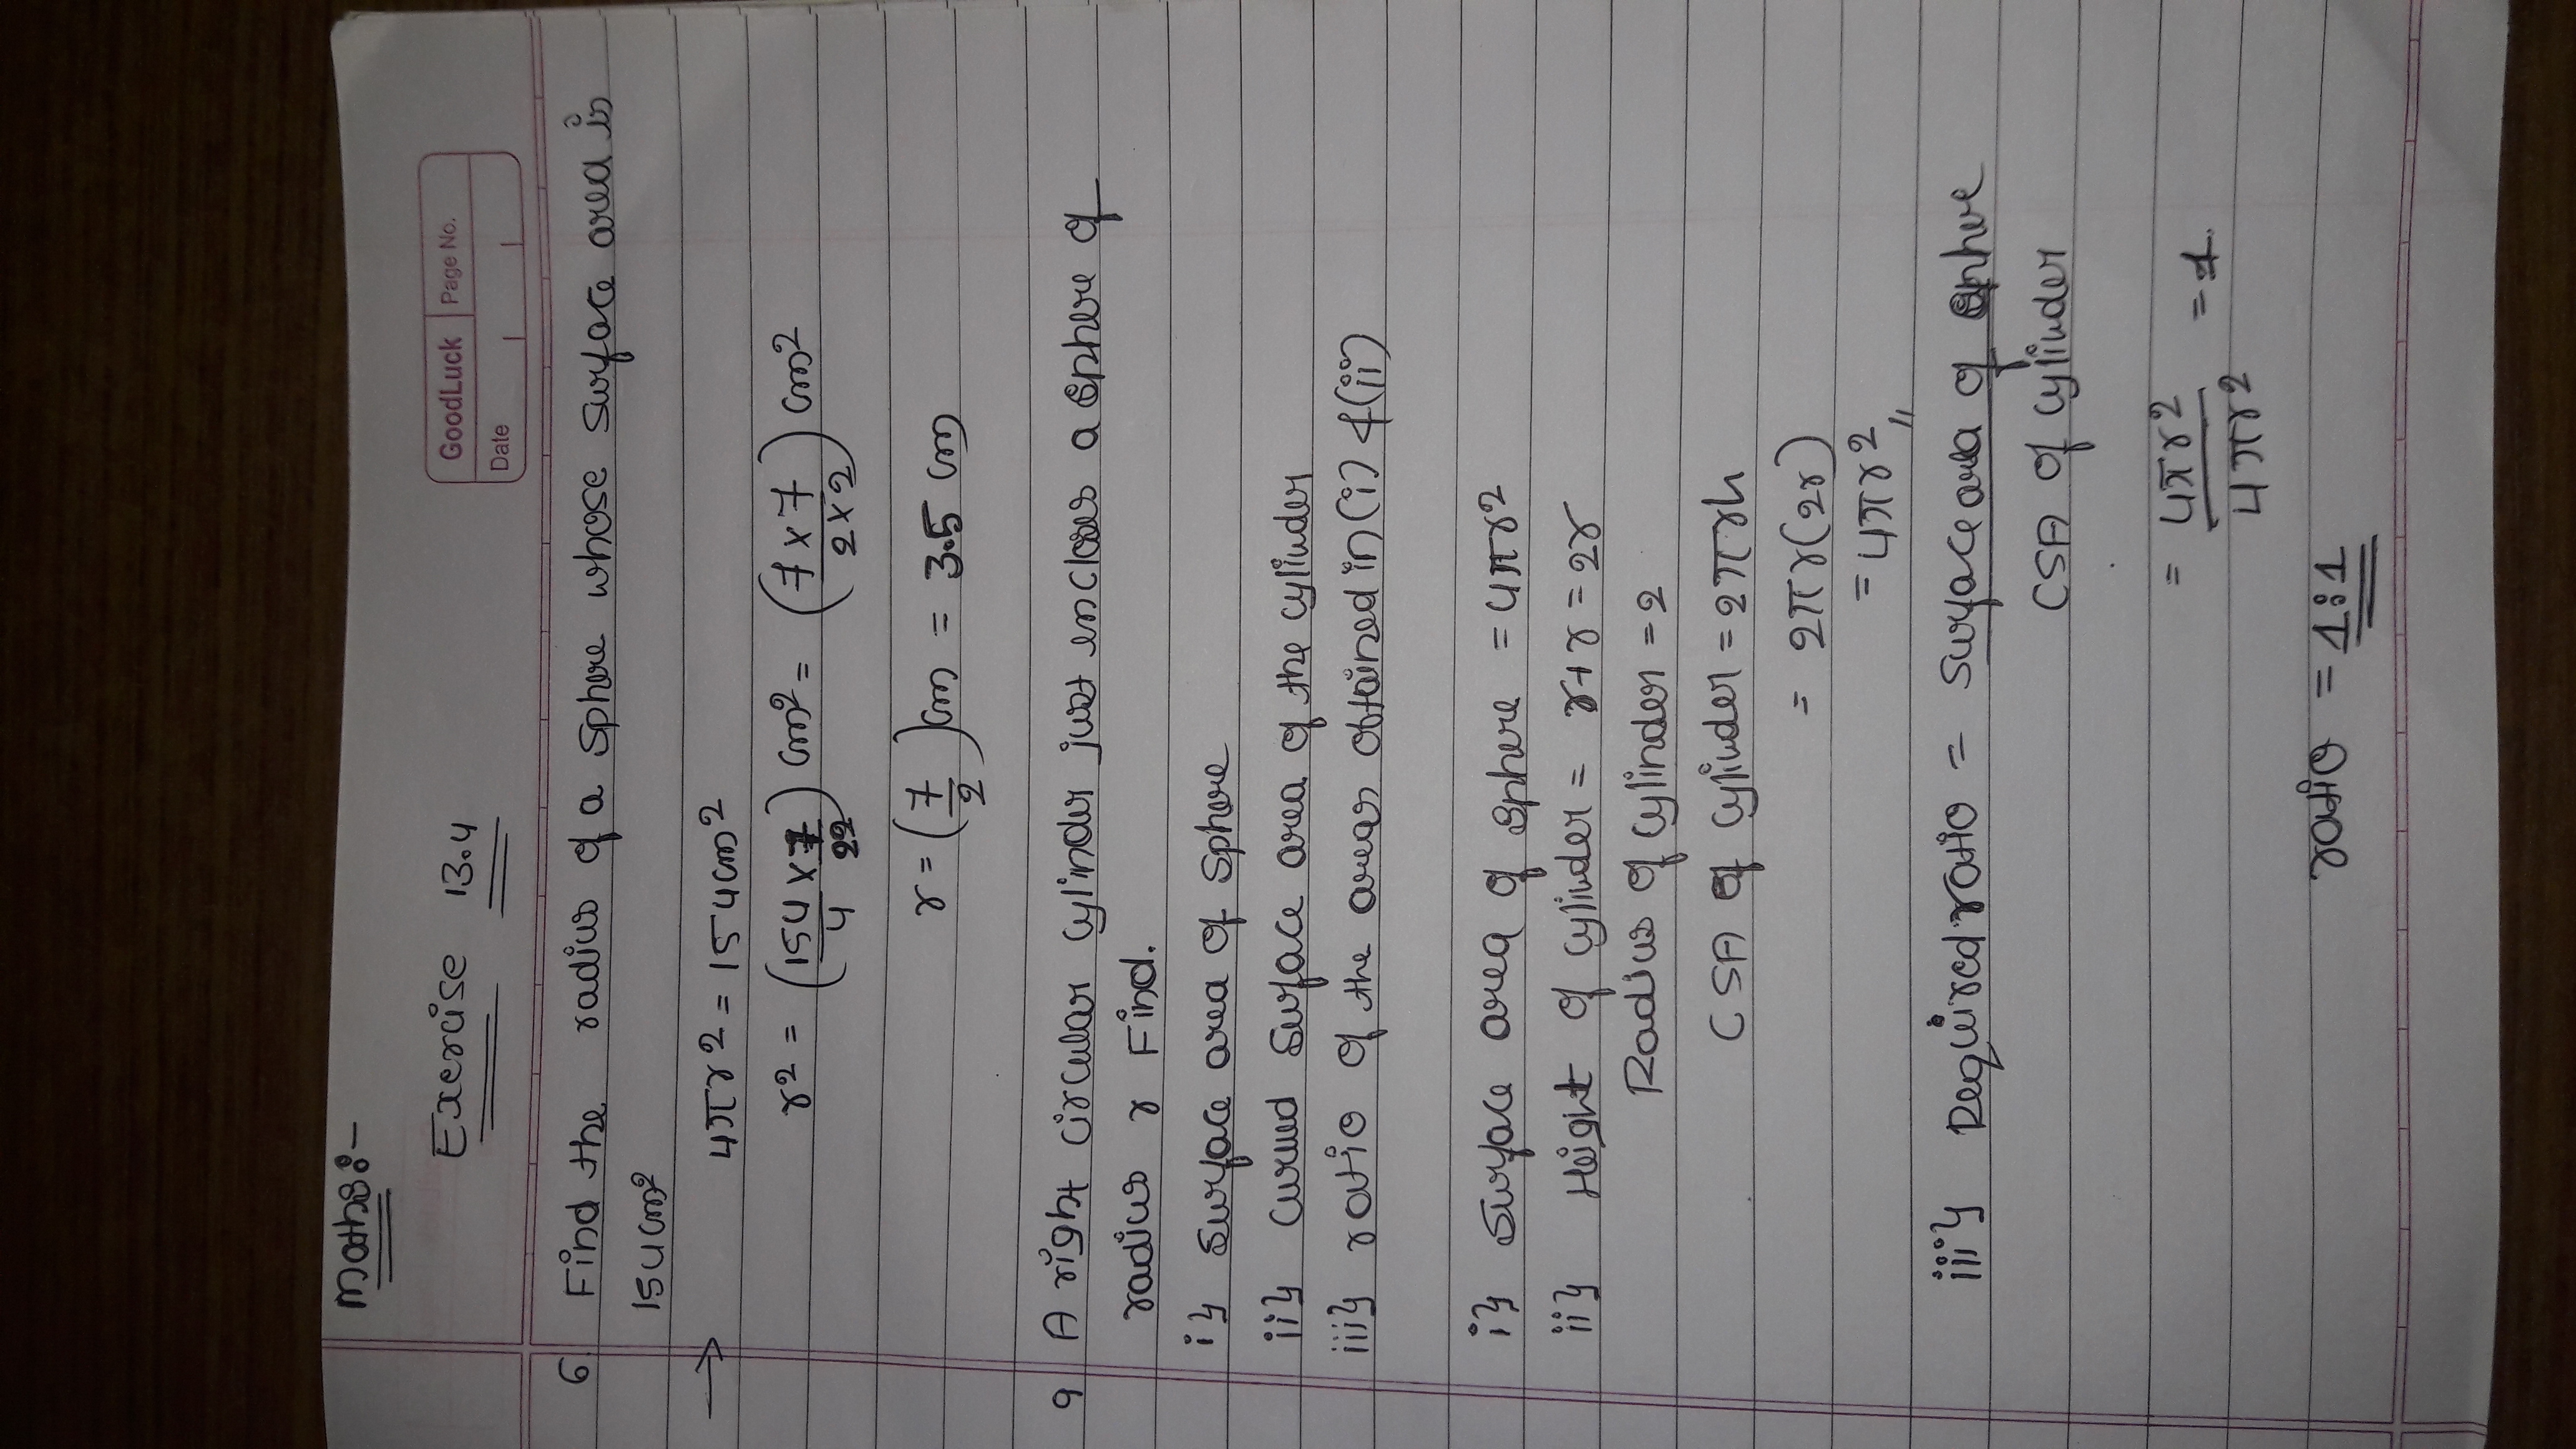 Maths:-
GoodLuck Page No.
Date
Exercise 13.4
6 Find the radius of a sphere whose surface area is
154cm²
→ 4πr2 = 154cm²
r2 = (154 x 7 / 4 22) cm² = (7 x 7 / 2 x 2) cm²
r = (7/2) cm = 3.5 cm
9 A right circular cylinder just encloses a sphere of
radius r Find.
i) Surface area of sphere
ii) Curved surface area of the cylinder
iii) ratio of the areas obtained in (i) & (ii)
i) Surface area of sphere = 4πr2
ii) Height of cylinder = r+r = 2r
Radius of cylinder = 2
CSA of cylinder = 2πrh
= 2πr(2r)
= 4πr2,,
iii) Required ratio = Surface area of sphere
CSA of cylinder
= 4πr2 / 4πr2 = 1
ratio = 1:1